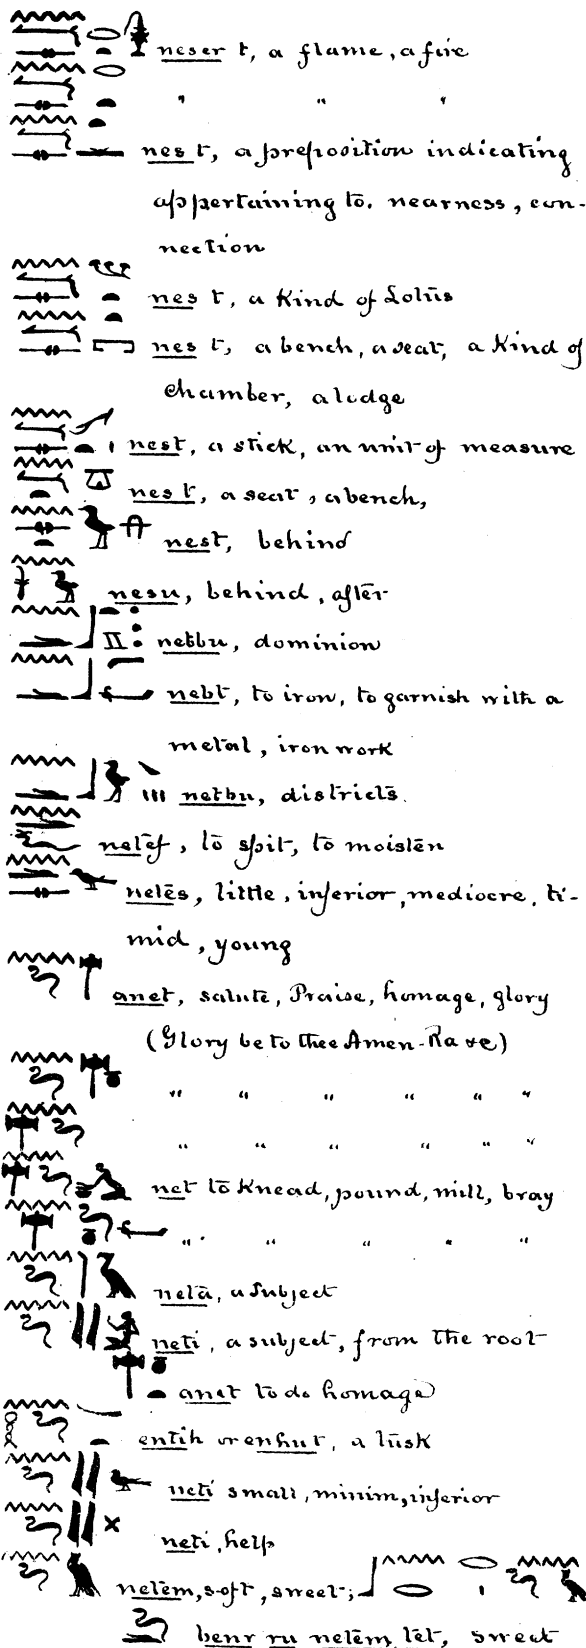 neser t, a flame, a fire
" " "
nes t, a preposition indicating
appertaining to. nearness, con-
nection
nes t, a Kind of Lotus
nes t, a bench, a seat, a Kind of
chamber, a lodge
nest, a stick, an unit of measure
nes t, a seat, a bench,
nest, behind
nesu, behind, after
netbu, dominion
nebt, to iron, to garnish with a
metal, iron work
netbu, districts.
netef, to spit, to moisten
netes, little, inferior, mediocre, ti-
mid, young
anet, salute, Praise, homage, glory
(Glory be to thee Amen-Ra &c)
" " " " " "
" " " " " "
net to Knead, pound, mill, bray
" " " " "
netā, a Subject
neti, a subject, from the root
anet to do homage
entih or enhut, a tusk
neti small, minim, inferior
neti, help
netem, soft, sweet;
benr ru netem tet, sweet